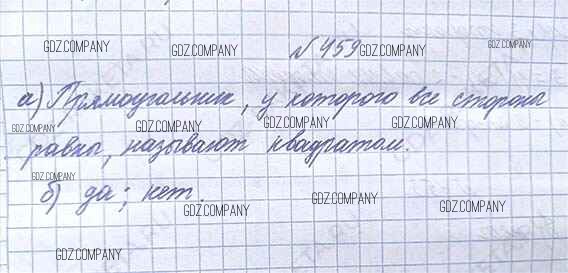 № 459
а) Прямоугольник, у которого все стороны
равны, называют квадратом.
б) да; нет.
GDZ.COMPANY GDZ.COMPANY GDZ.COMPANY GDZ.COMPANY
GDZ.COMPANY GDZ.COMPANY GDZ.COMPANY GDZ.COMPANY
GDZ.COMPANY GDZ.COMPANY GDZ.COMPANY GDZ.COMPANY
GDZ.COMPANY